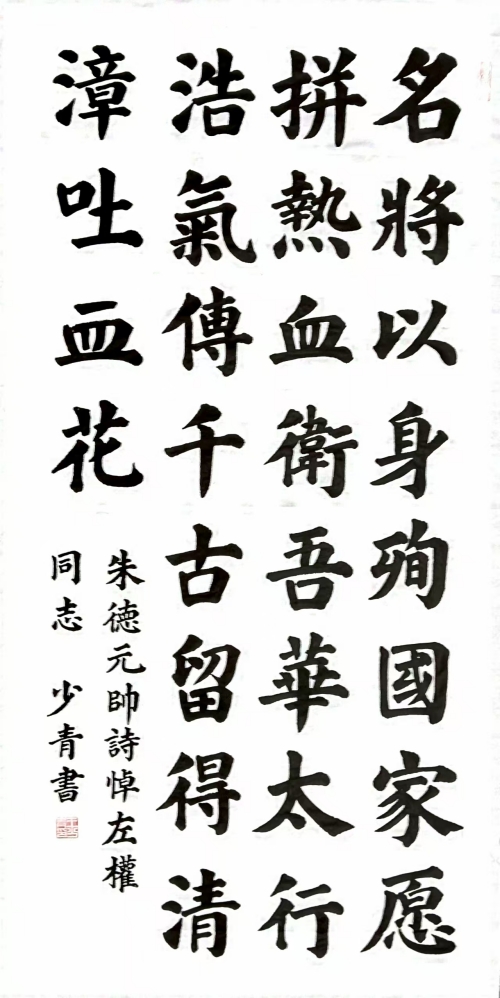 名將以身殉國家愿
拼熱血衛吾華太行
浩氣傳千古留得清
漳吐血花
朱德元帥詩悼左權
同志 少青書